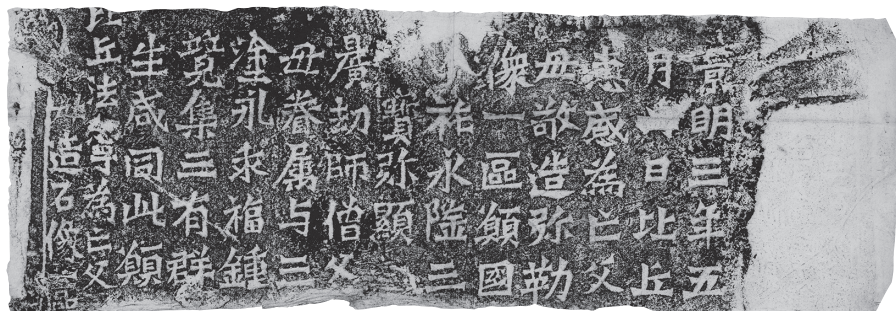 景明三年五
月日比丘
惠感為亡父
母敬造弥勒
像一區願國
祚永隆三
寶弥顯
曠劫師僧父
母眷属与三
塗永乖福鍾
竟集三有群
生咸同此願
比丘法寧為亡父
母造石像一區